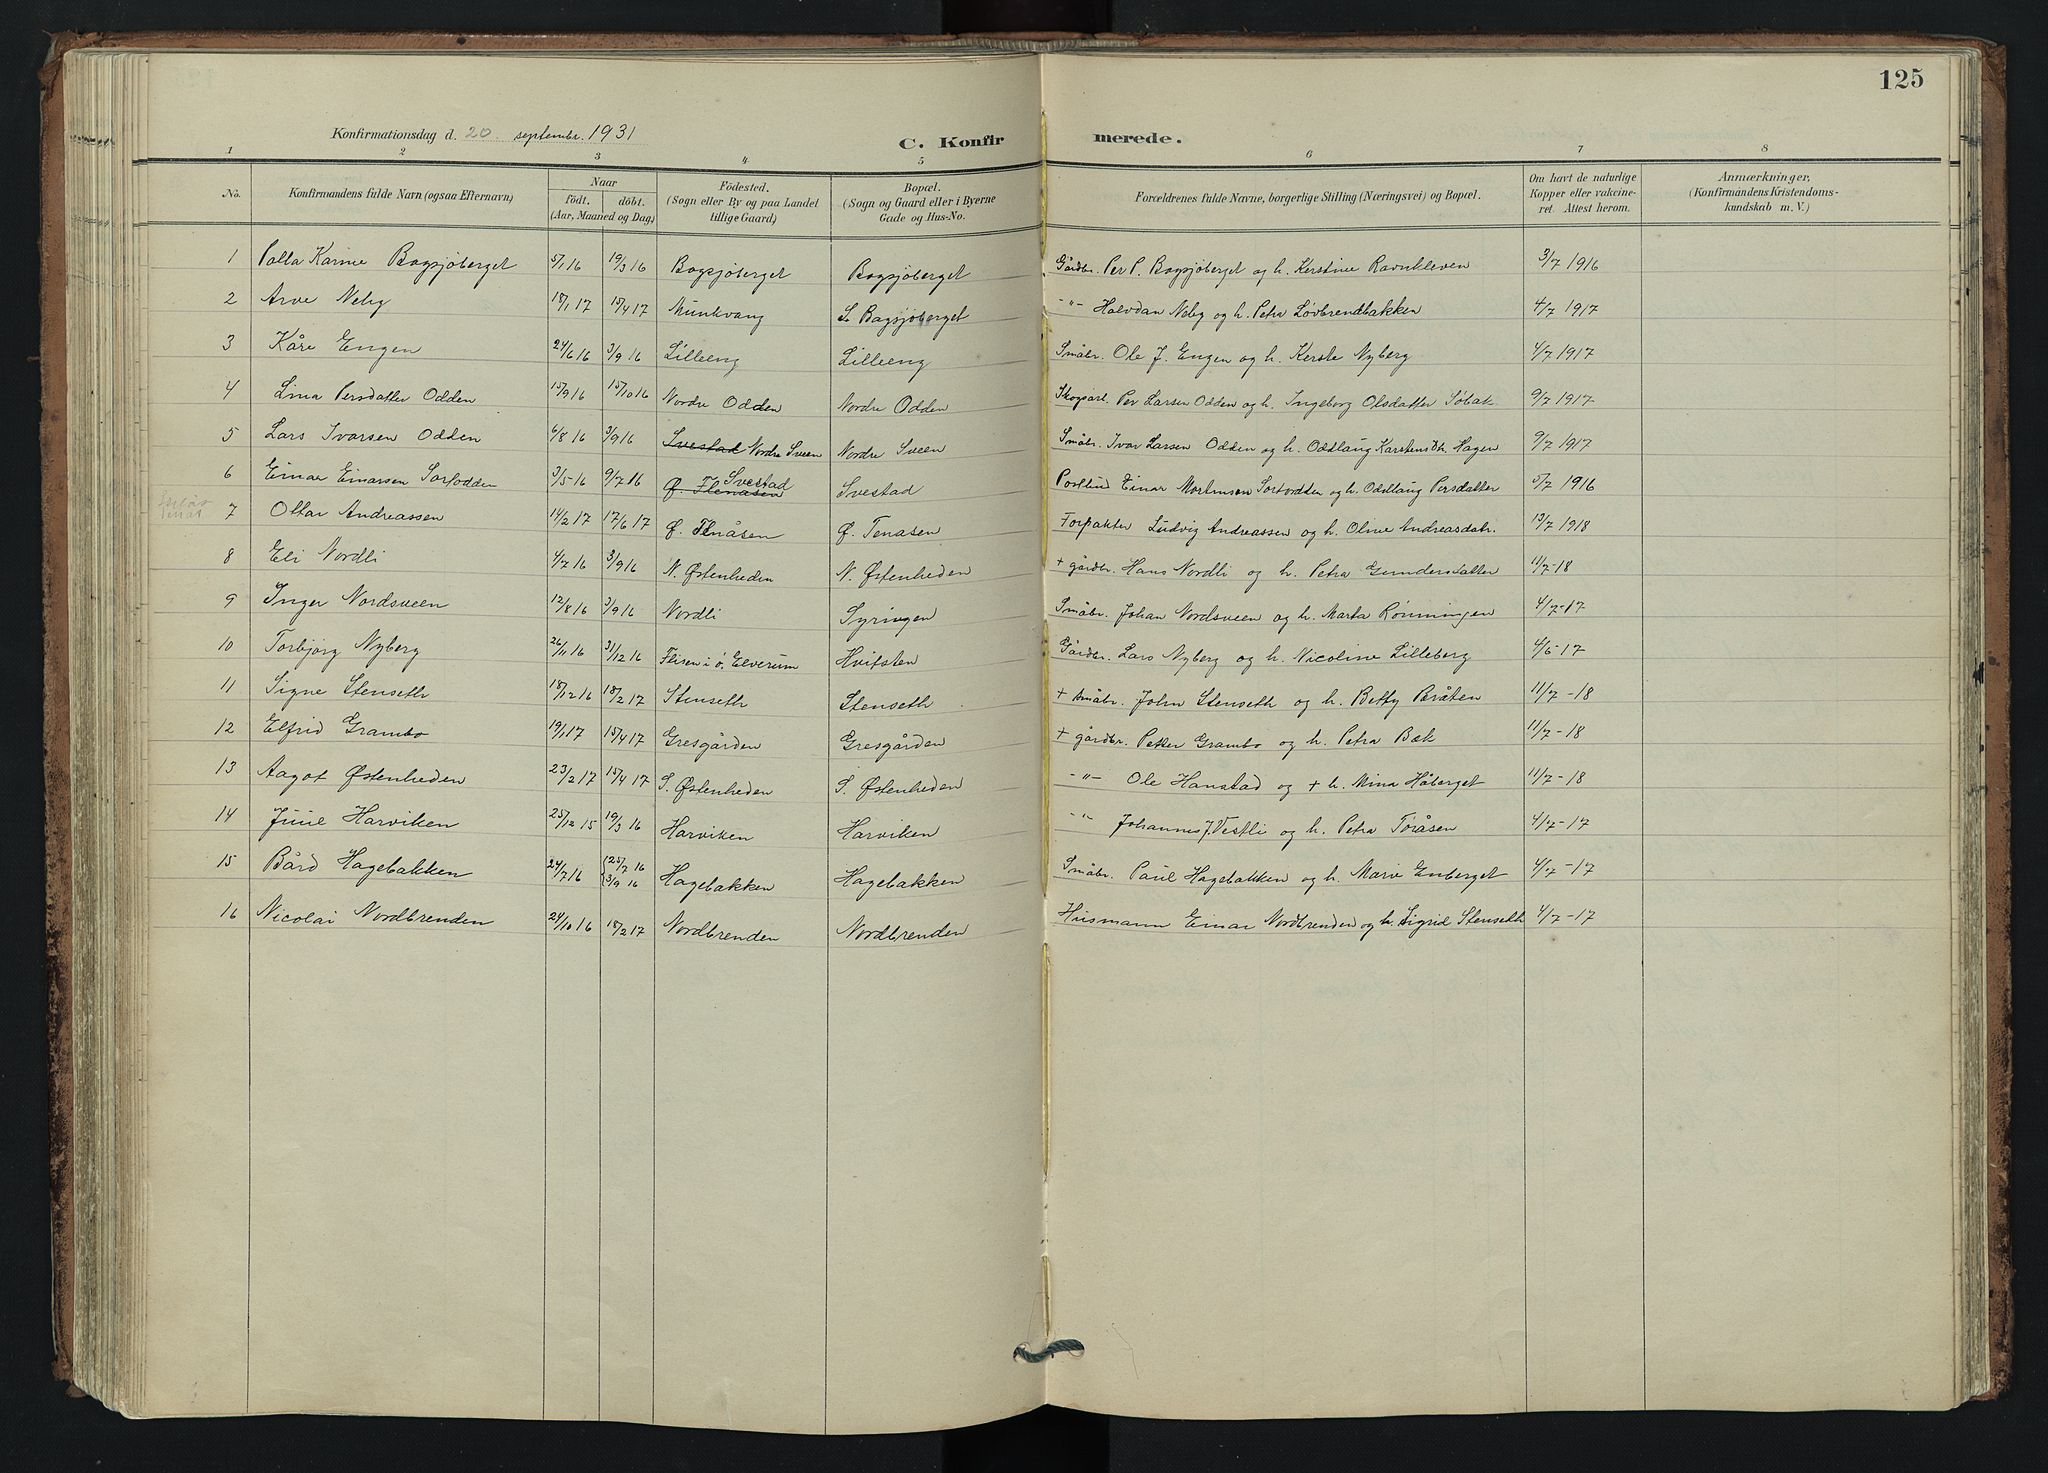 125
Konfirmationsdag d. 20 septembr. 1931
C. Konfirmerede.
1 2 3 4 5 6 7 8
No. Konfirmandens fulde Navn (ogsaa Efternavn) Naar født. døbt. (Aar, Maaned og Dag) Födested. (Sogn eller By og paa Landet tillige Gaard) Bopæl. (Sogn og Gaard eller i Byerne Gade og Hus-No. Forældrenes fulde Navne, borgerlige Stilling (Næringsvei) og Bopæl. Om havt de naturlige Kopper eller vakcineret. Attest herom. Anmærkninger, (Konfirmandens Kristendomskundskab m. V.)
1 Palla Karine Bagsjöberget 5/1 16 19/3 16 Bagsjöberget Bagsjöberget Gårdbr. Per P. Bagsjöberget og h. Kerstine Ravnkleven 3/7 1916
2 Arve Neby 18/1 17 15/4 17 Munkvang S. Bagsjöberget -"- Halvdan Neby og h. Petra Løvbrendbakken 4/7 1917
3 Kåre Engen 24/6 16 3/9 16 Lilleeng Lilleeng Småbr. Ole J. Engen og h. Kerste Nyberg 4/7 1917
4 Lina Persdatter Odden 15/9 16 15/10 16 Nordre Odden Nordre Odden Skogsarb. Per Larsen Odden og h. Ingeborg Olsdatter Söbak 9/7 1917
5 Lars Ivarsen Odden 6/8 16 3/9 16 Svestad Nordre Sveen Nordre Sveen Småbr. Ivar Larsen Odden og h. Oddlaug Karstensdtr. Hagen 9/7 1917
6 Einar Einarsen Sorfodden 3/5 16 9/7 16 Ø. Flenåsen Svestad Svestad Postbud Einar Mortensen og h. Oddlaug Persdatter 5/7 1916
7 Ottar Andreassen 14/2 17 17/6 17 Ø. Flenåsen Ø. Tenåsen Forpakter Ludvig Andreassen og h. Oline Andreasdatr. 13/7 1918
8 Eli Nordli 4/7 16 3/9 16 N. Østenheden N. Østenheden + gårdbr. Hans Nordli og h. Petra Gundersdatter 11/7-18
9 Inger Nordsveen 12/8 16 3/9 16 Nordli Syringen Småbr. Johan Nordsveen og h. Marta Rønningen 4/7-17
10 Torbjörg Nyberg 26/11 16 31/12 16 Flisen i ö. Elverum Hvitsten Gårdbr. Lars Nyberg og h. Nicoline Lilleberg 4/6-17
11 Signe Stenseth 18/12 16 18/2 17 Stenseth Stenseth + småbr. John Stenseth og h. Betty Bråten 11/7-18
12 Elfrid Grambo 19/1 17 15/4 17 Gresgården Gresgården + gårdbr. Petter Grambo og h. Petra Bæk 11/7-18
13 Aagot Østenheden 23/2 17 15/4 17 S. Østenheden S. Østenheden -"- Ole Hanstad og + h. Mina Håberget 11/7-18
14 Juul Harviken 25/12 15 19/3 16 Harviken Harviken -"- Johannes J. Vestli og h. Petra Toråsen 4/7-17
15 Bård Hagebakken 24/7 16 {25/7 16 3/9 16 Hagebakken Hagebakken Småbr. Paul Hagebakken og h. Marie Enberget 4/7-17
16 Nicolai Nordbrenden 24/10 16 18/2 17 Nordbrenden Nordbrenden Husmann Einar Nordbrenden og h. Sigrid Stenseth 4/7-17